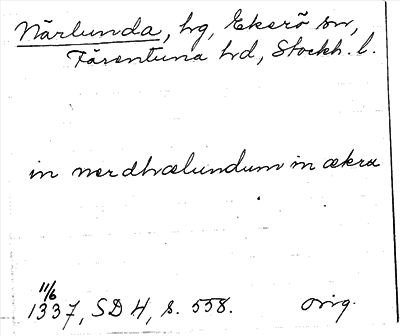 Närlunda, hg, Ekerö sn,
Färentuna hd, Stockh. l.
in nerdhælundum in ækra
11/6
1337, SDH, s. 558. orig.